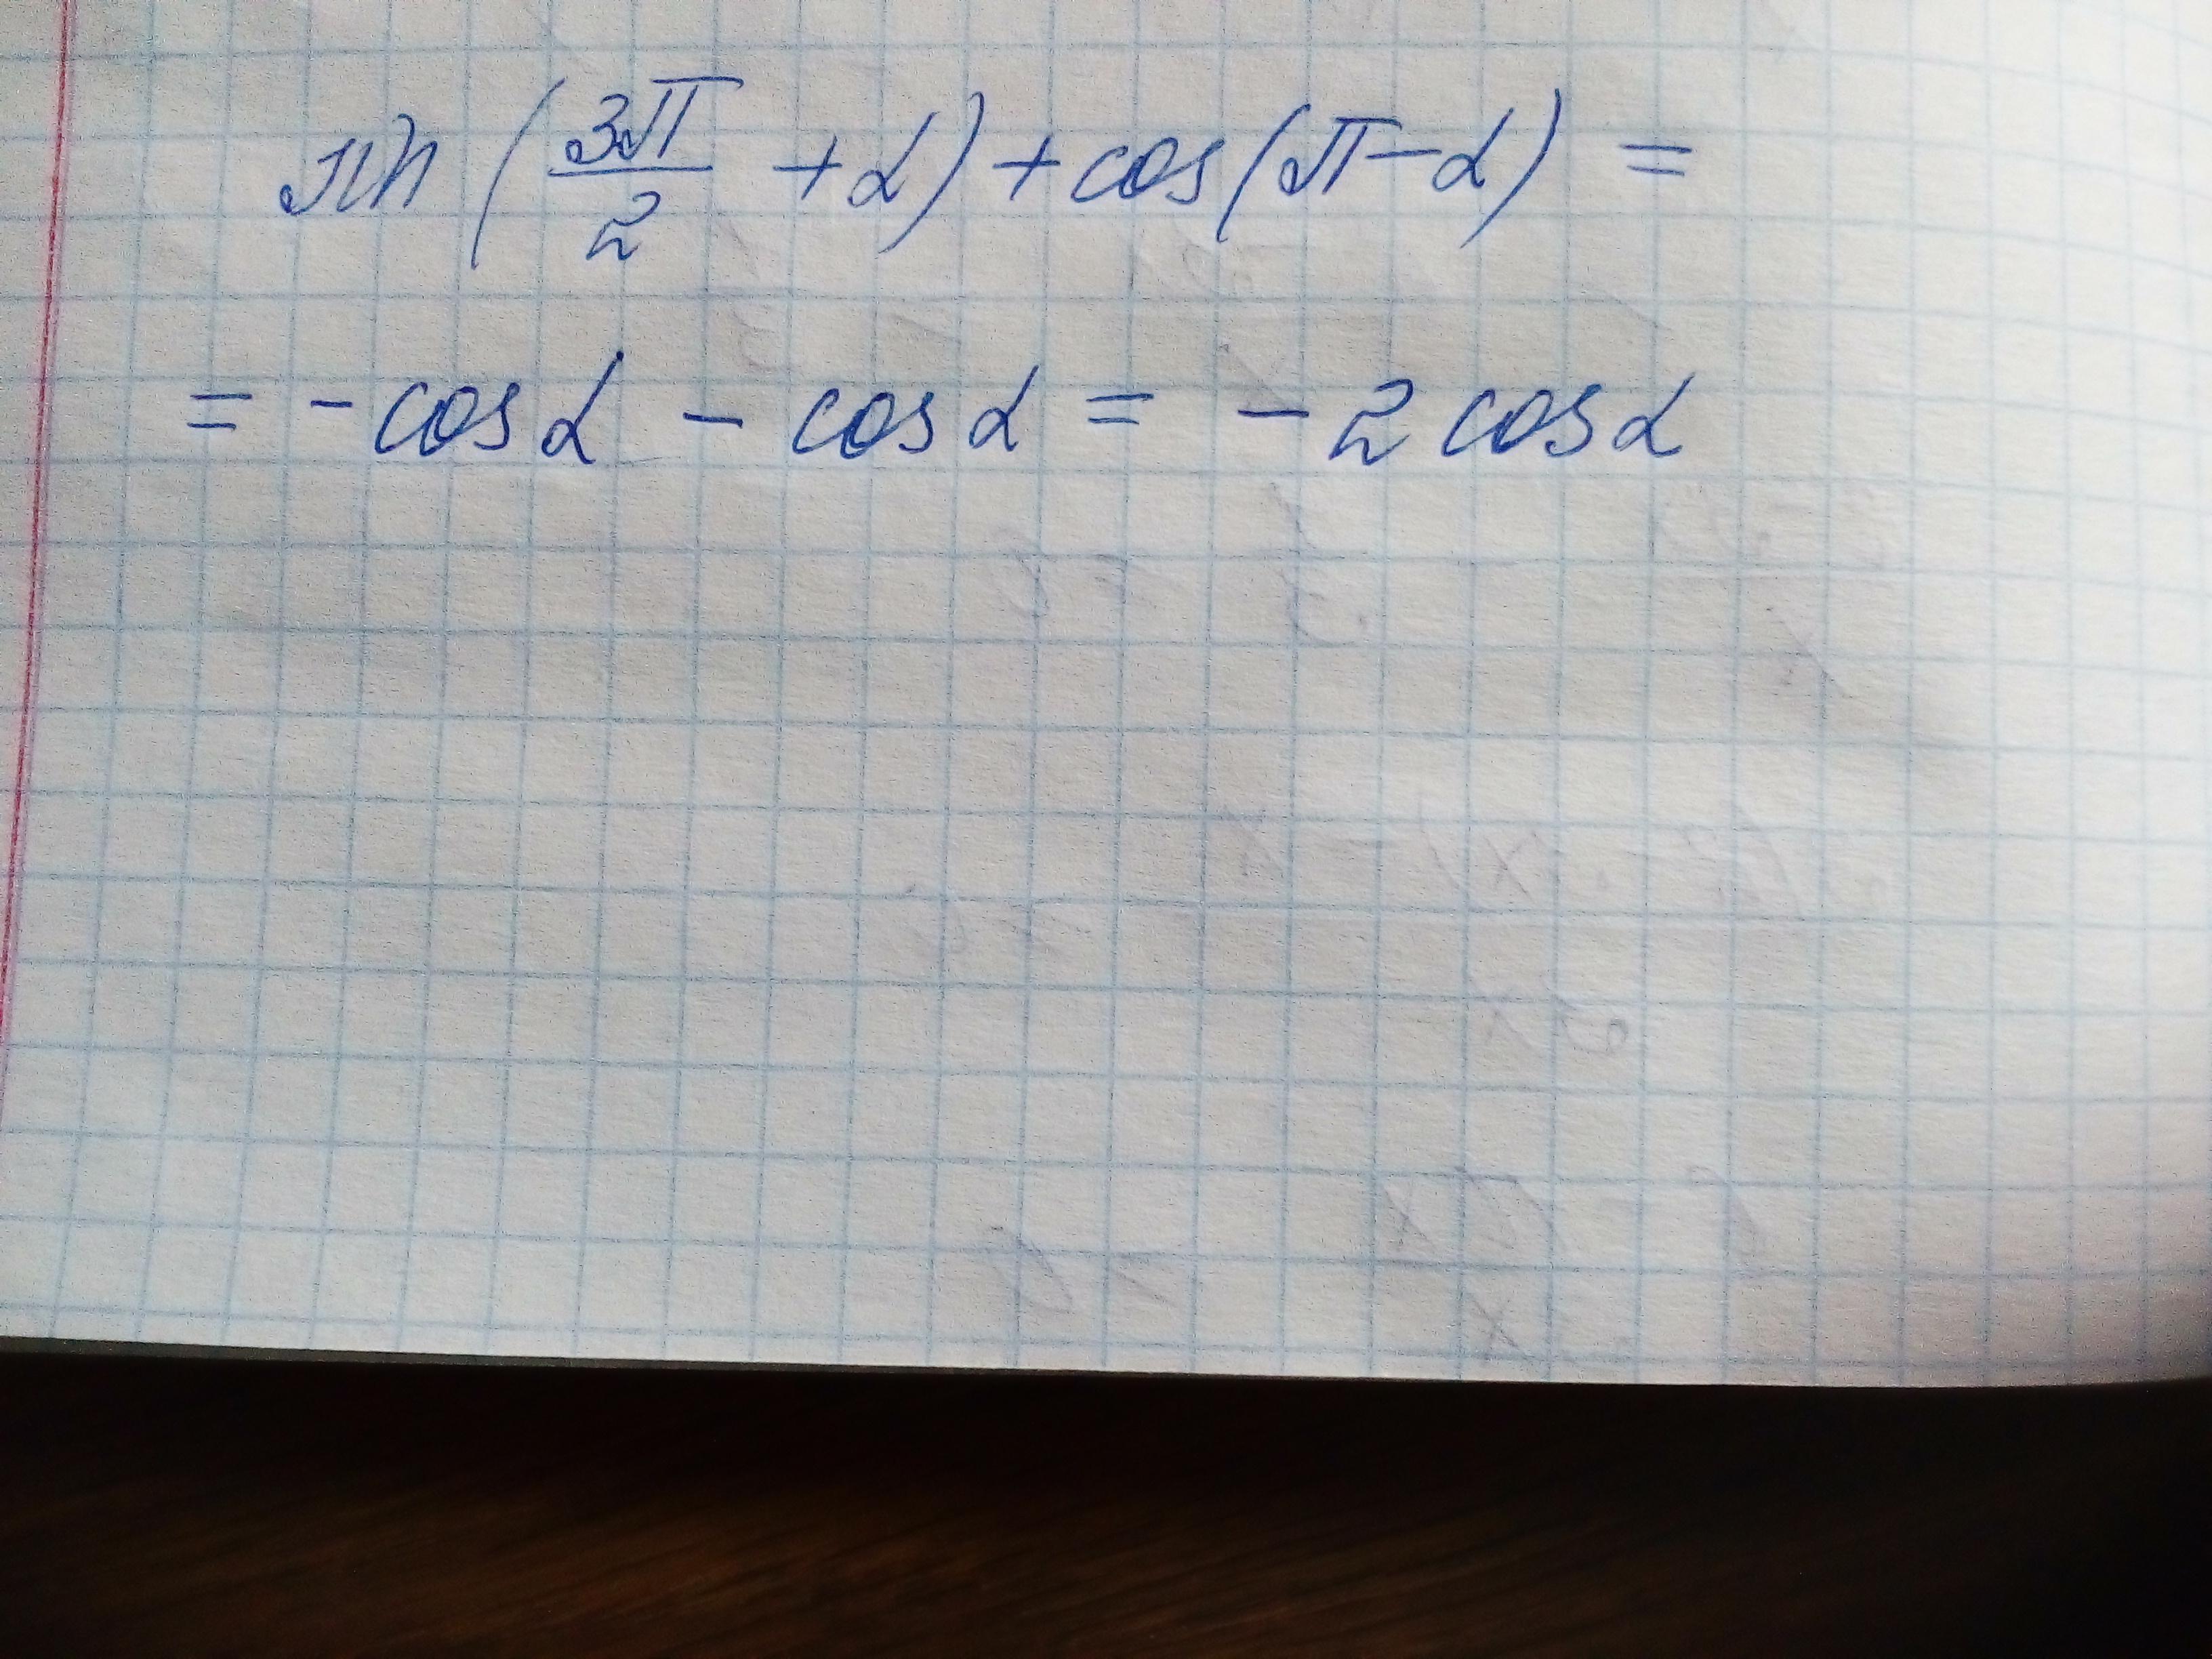 sin (3π/2 + α) + cos(π - α) =
= - cos α - cos α = - 2 cos α